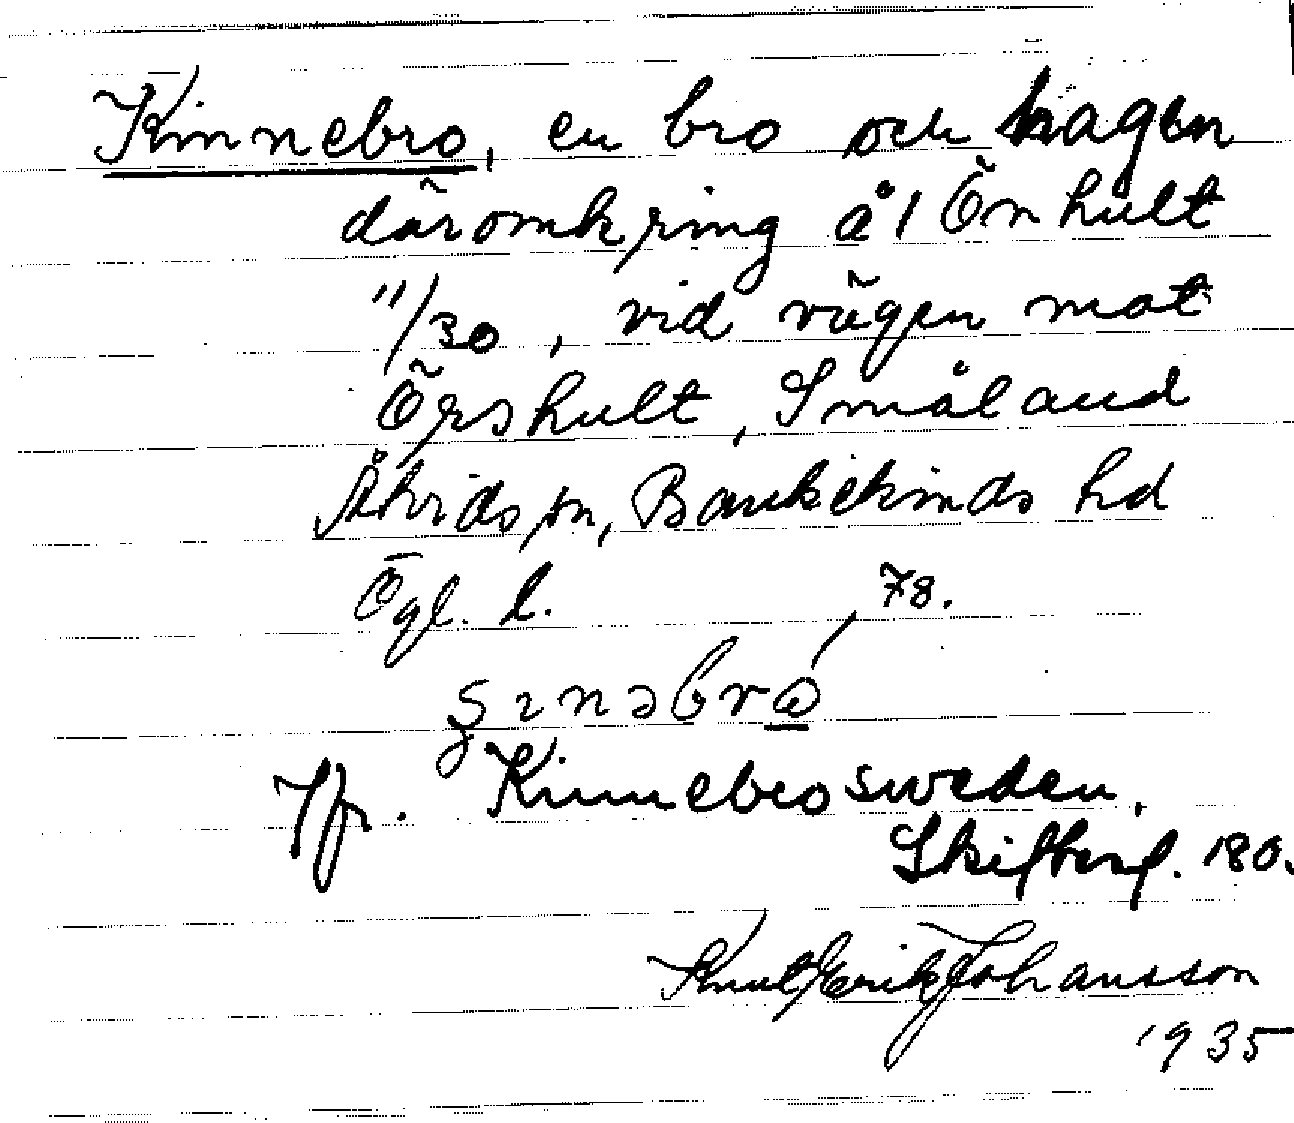 Kinnebro, en bro och hagen
däromkring å 1 Önhult
11/30, vid vägen mot
Örshult, Småland
Åtvids sn, Bankekinds hd
Ögl. l.
78.
Jfr. Kinnebrosweden.
Skiftesf. 180.
Knut Erik Johansson
1935